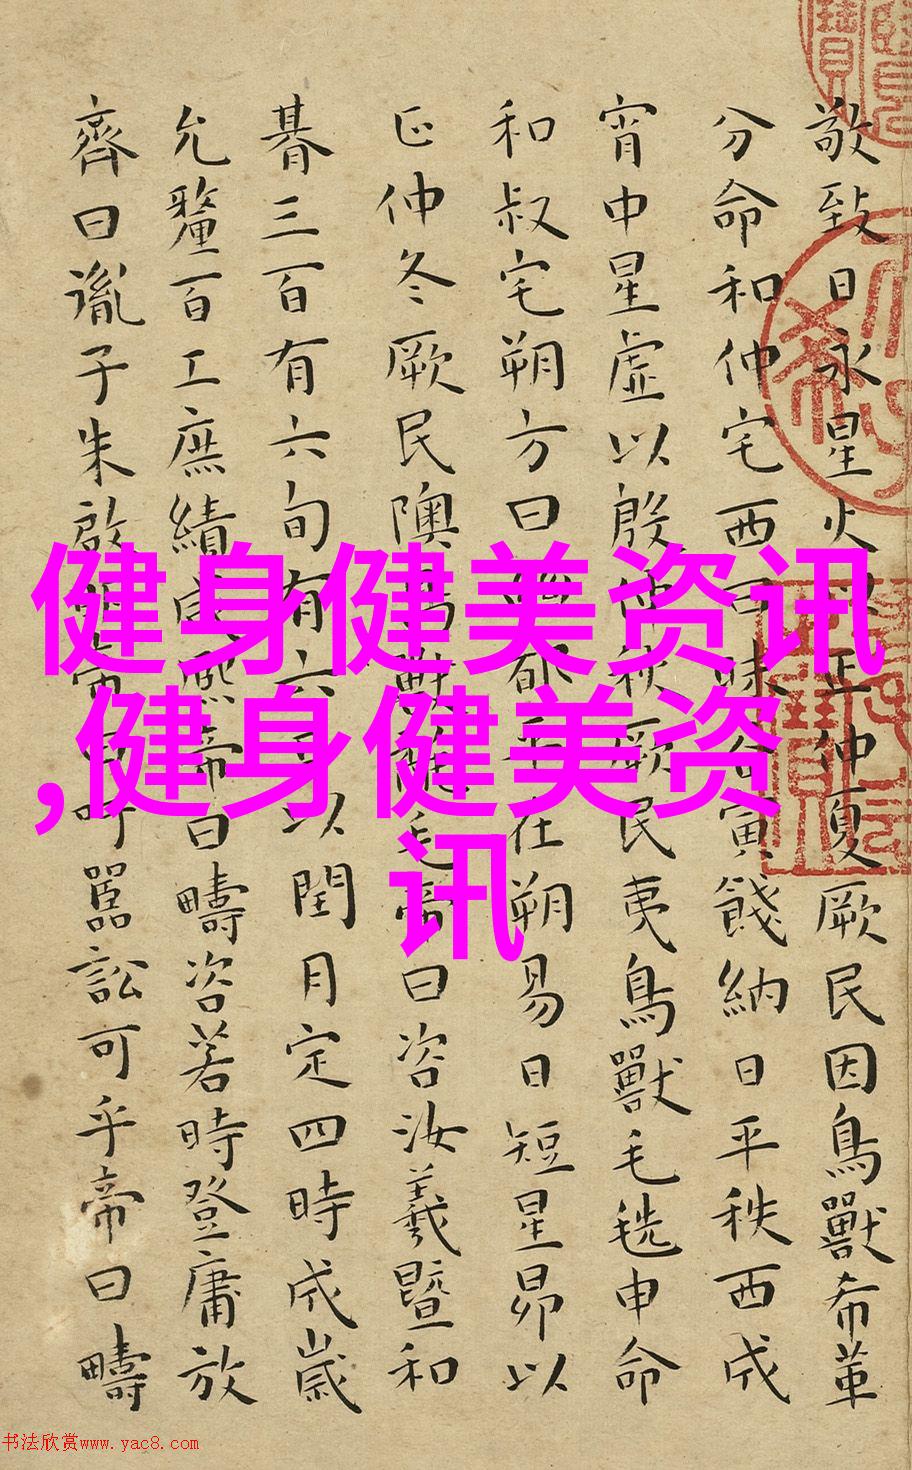 敬致日永星火正仲夏厥民因鳥獸希革
分命和仲宅西曰昧谷寅餞納日平秩西成
宵中星虛以殷仲秋厥民夷鳥獸毛毨申命
和叔宅朔方曰幽都平在朔易日短星昴以
正仲冬厥民隩鳥獸氄毛帝曰咨汝羲暨和
朞三百有六旬有六日以閏月定四時成歲
允釐百工庶績咸熙帝曰疇咨若時登庸放
齊曰胤子朱啟明帝曰吁嚚訟可乎帝曰疇
健身健美资讯
,健身健美资
讯
书法欣赏www.yac8.com